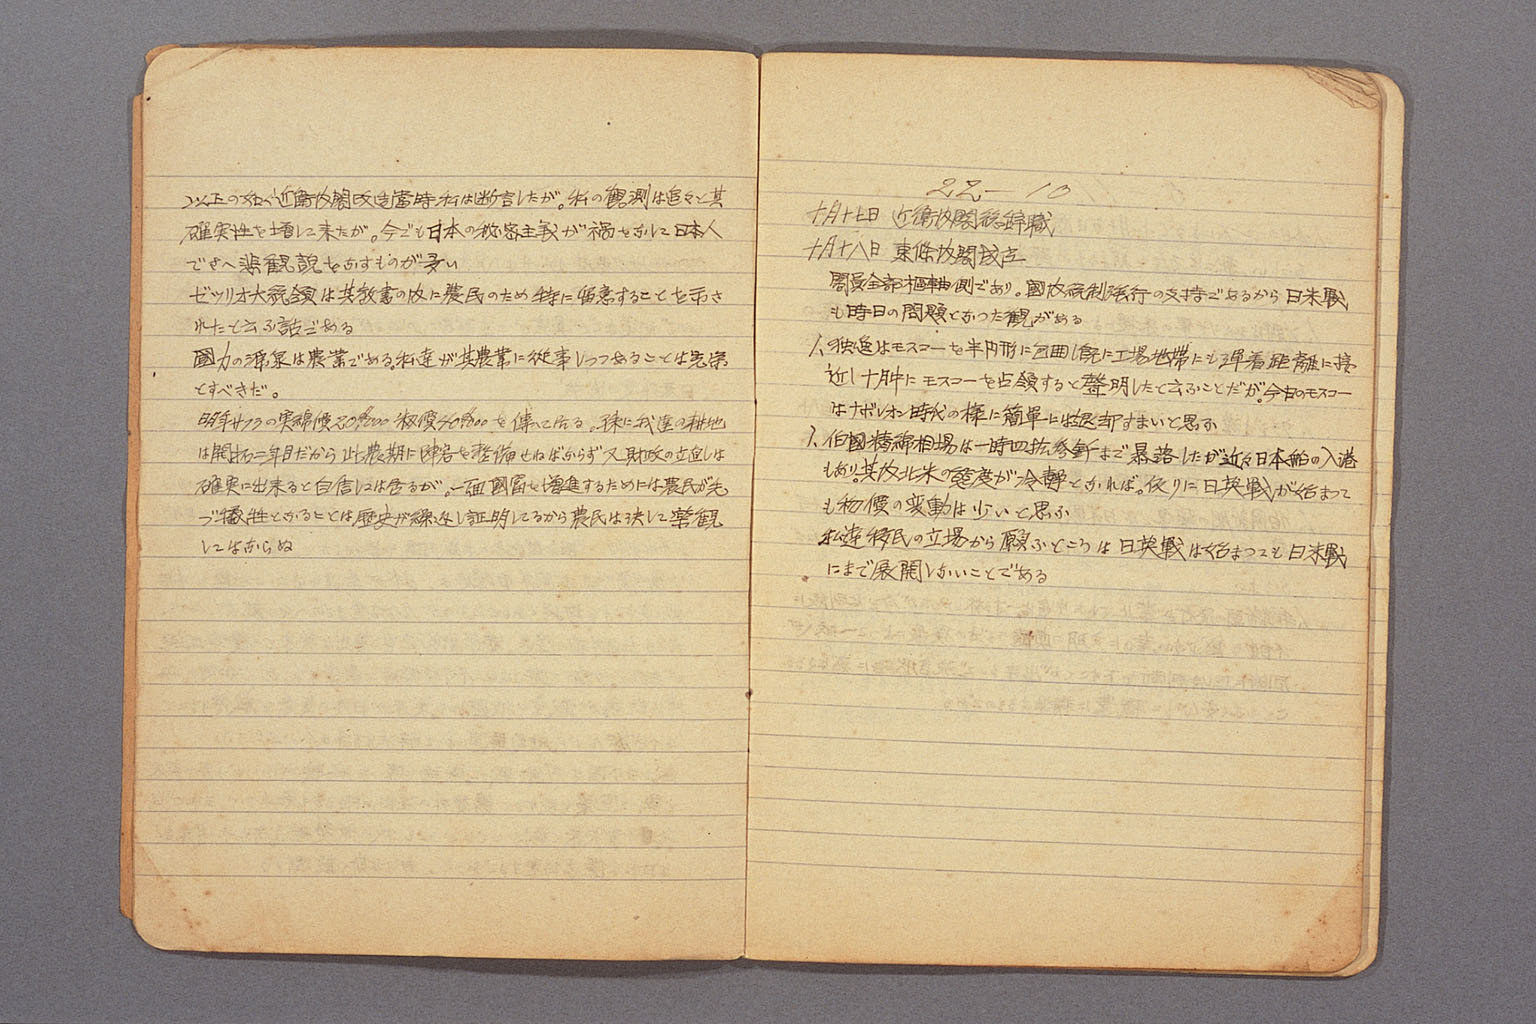 以上の如く近衛内閣改造當時私は断言したが。私の観測は追々と其
確実性を増して来たが。今でも日本の秘密主義が禍をなして日本人
でさへ悲観説をなすものが多い
ゼツリオ大統領は其教書の内に農民のため特に留意することを示さ
れたと云ふ話である
國力の源泉は農業である私達が其農業に従事しつつあることは光栄
とすべきだ。
昨年サフラの実綿價20$000 籾價40$000を伝へて居る。殊に我達の耕地
は開拓二年目だから此農期に障害を整備せねばならず又財政の立直しは
確実に出来ると自信しては居るが。一面國富を増進するためには農民が先
づ犠牲となることは歴史が繰返し証明してるから農民は決して楽観
してはならぬ
22 — 10
十月十七日 近衛内閣総辞職
十月十八日 東條内閣成立
閣員全部枢軸側であり。國内統制強行の支持であるから日米戦
も時日の問題となつた観がある
1、独逸はモスコーを半円形に包囲し既に工場地帯にも弾着距離に接
近し十月中にモスコーを占領すると聲明したと云ふことだが。今日のモスコー
はナポレオン時代の様に簡単には退却すまいと思ふ
1、伯國精綿相場は一時四拾参ミルまで暴落したが近々日本船の入港
もあり。其内北米の態度が冷静となれば。仮りに日英戦が始まつて
も物價の変動は少いと思ふ
私達移民の立場から願ふところは日英戦は始まつても日米戦
にまで展開しないことである